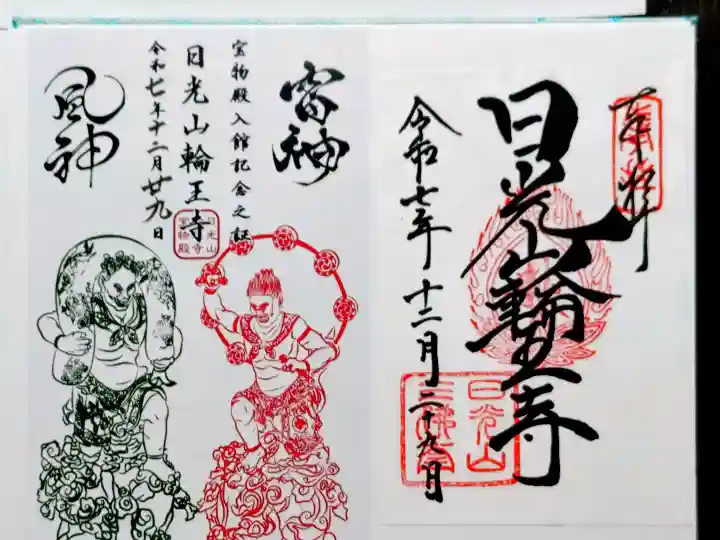 奉拝
日光山輪王寺
令和七年十二月二十九日
雷神
宝物殿入館記念之証
日光山輪王寺
令和七年十二月廿九日
風神
日光山